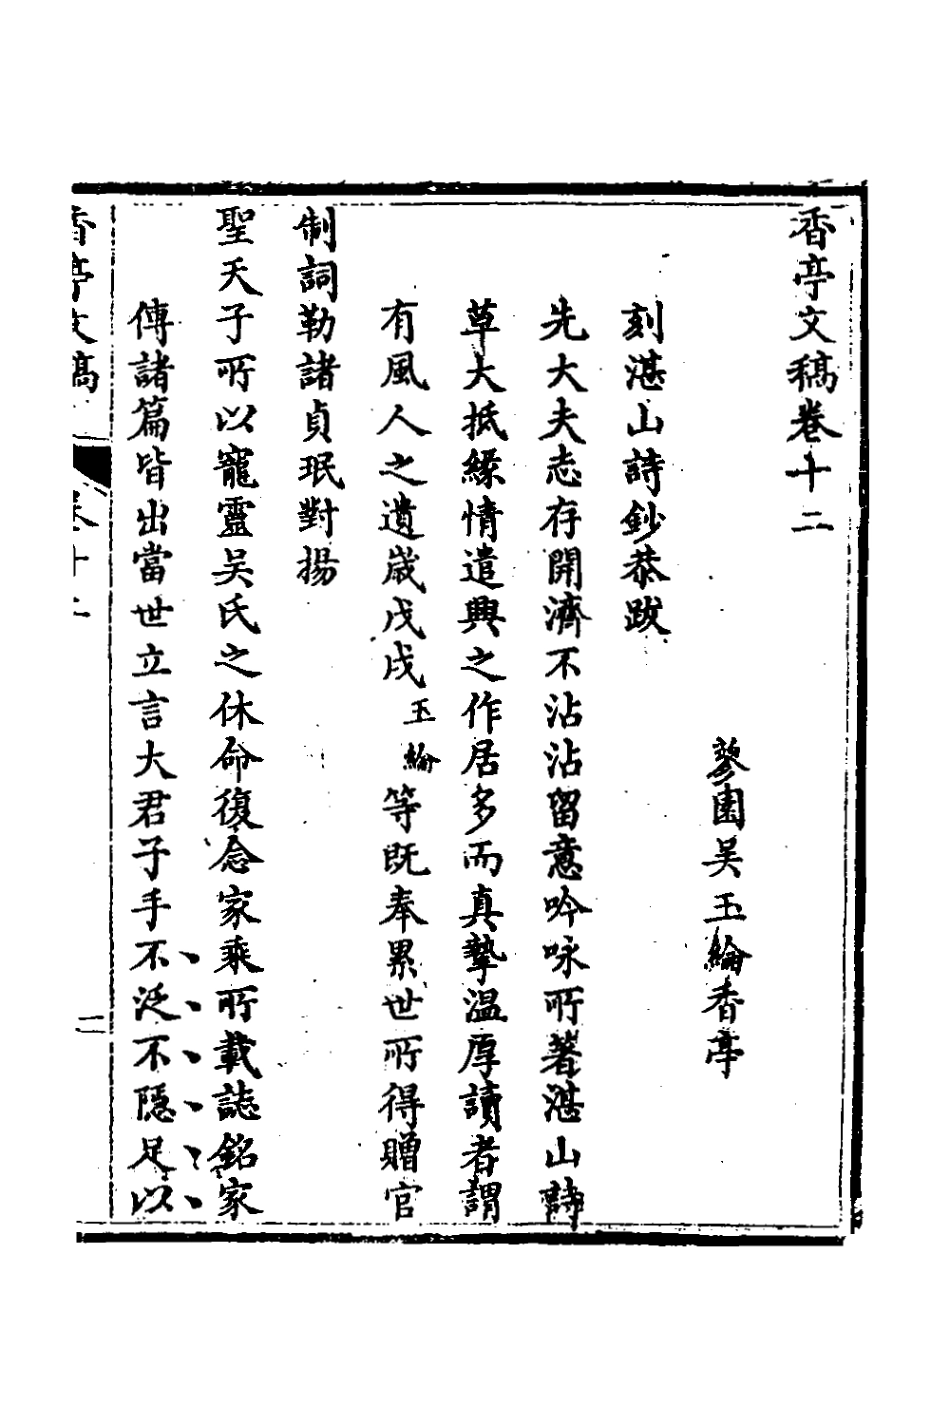 香亭文稿卷十二
蓼園吴玉綸香亭
刻湛山詩鈔恭跋
先大夫志存開濟不沾沾留意吟咏所著湛山詩
草大抵緣情遣興之作居多而真摯溫厚讀者謂
有風人之遺歲戊戌玉綸等既奉累世所得贈官
制詞勒諸貞珉對揚
聖天子所以寵靈吴氏之休命復念家乘所載誌銘家
傳諸篇皆出當世立言大君子手不泛不隱足以
香亭文稿 卷十二 二